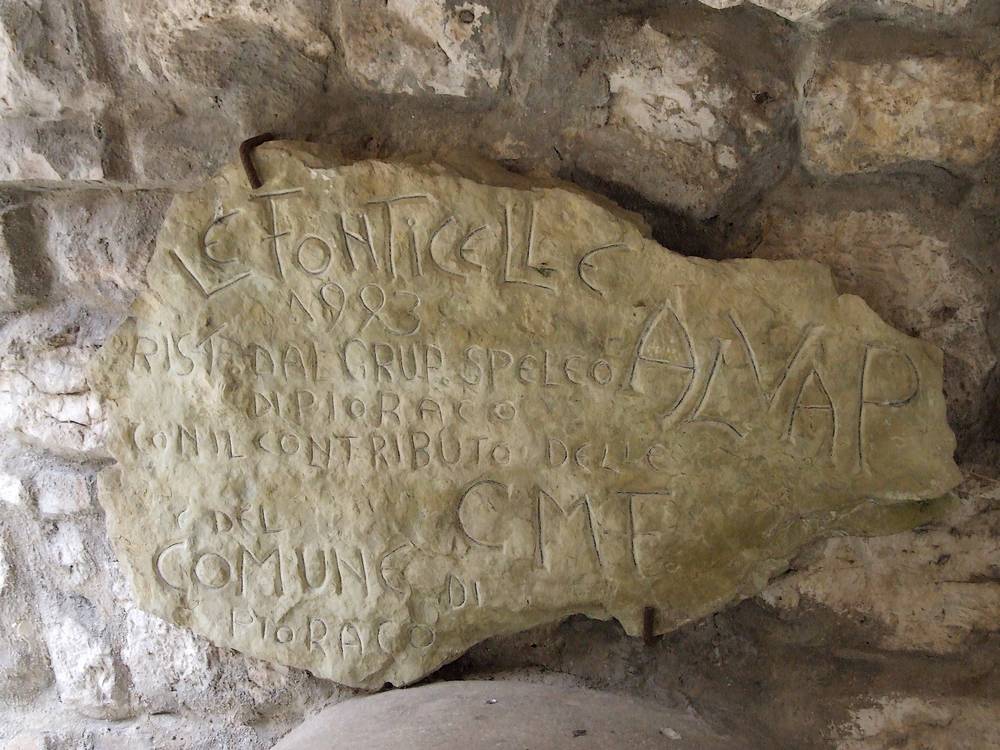 LE FONTICELLE
1993
RIST. DAL GRUP. SPELEO
DI PIORACO
CON IL CONTRIBUTO DELLE
ALVAP
CMT
E DEL
COMUNE DI
PIORACO